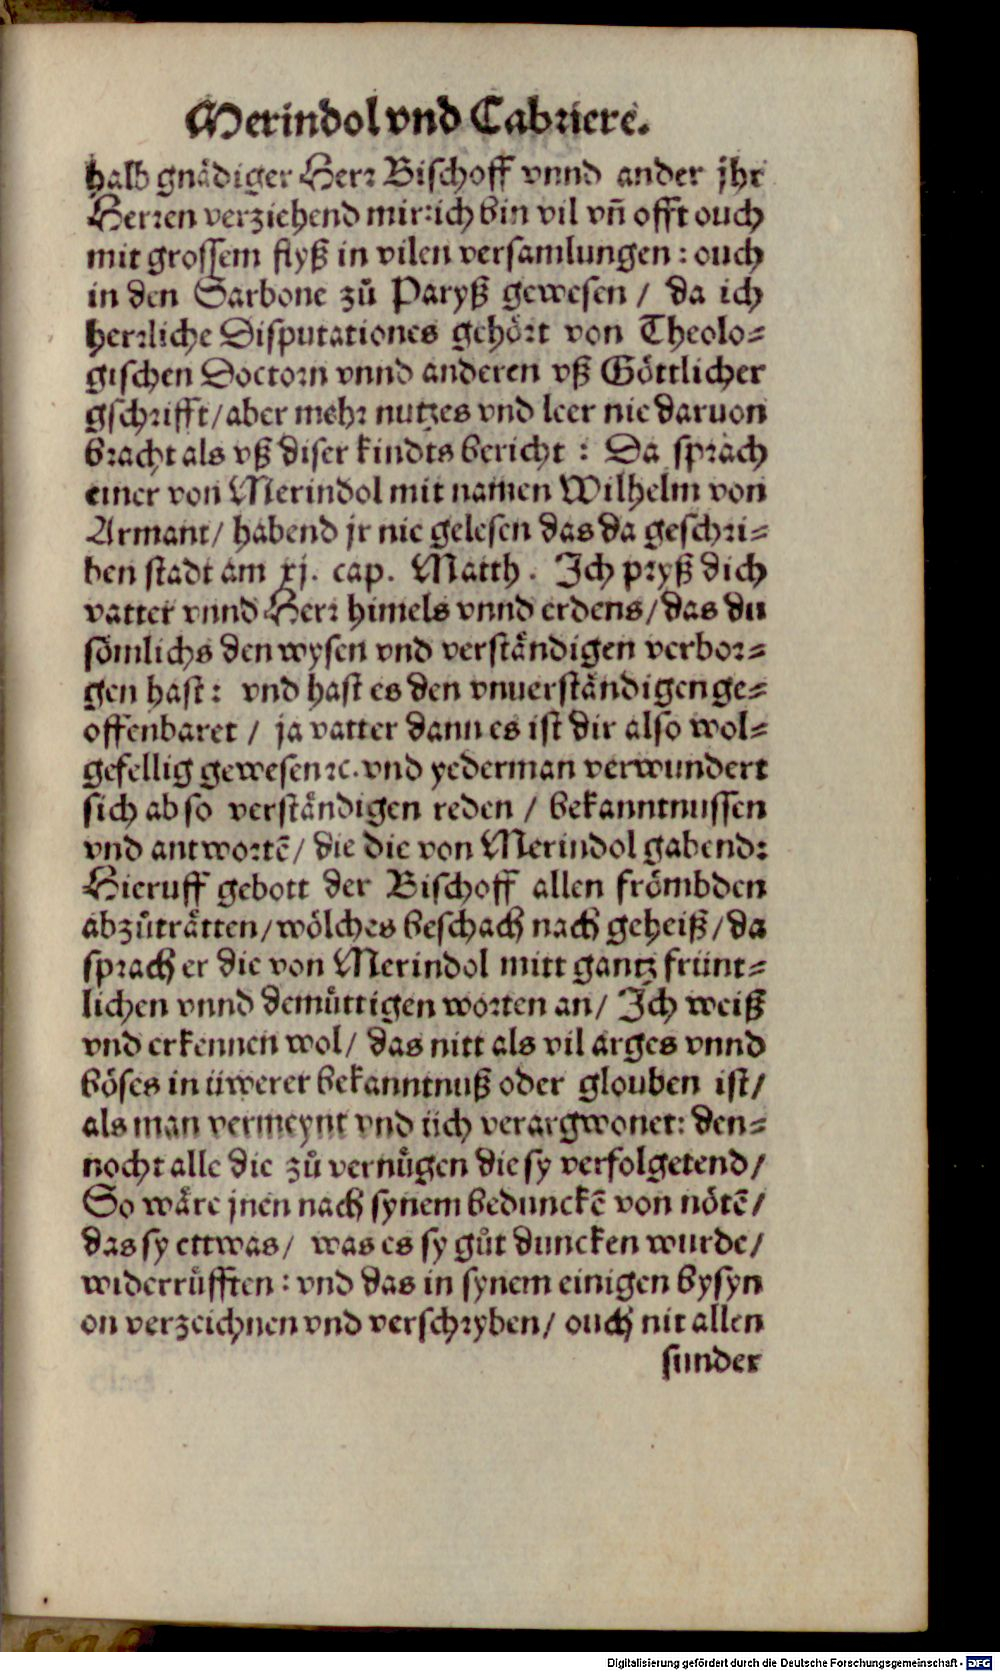 Merindol vnd Cabriere.
halb gnädiger Herr Bischoff vnnd ander jhr
Herren verziehend mir: ich bin vil vñ offt ouch
mit grossem flyß in vilen versamlungen: ouch
in den Sarbone zů Paryß gewesen / da ich
herrliche Disputationes gehört von Theolo-
gischen Doctorn vnnd anderen vß Göttlicher
gschrifft/ aber mehr nutzes vnd leer nie daruon
bracht als vß diser kindts bericht: Da sprach
einer von Merindol mit namen Wilhelm von
Armant/ habend jr nie gelesen das da geschri-
ben stadt am xj. cap. Matth. Ich pryß dich
vatter vnnd Herr himels vnnd erdens/ das du
sömlichs den wysen vnd verständigen verbor-
gen hast: vnd hast es den vnuerständigen ge-
offenbaret / ja vatter dann es ist dir also wol-
gefellig gewesen ꝛc. vnd yederman verwundert
sich ab so verständigen reden / bekanntnussen
vnd antwortē/ die die von Merindol gabend:
Hieruff gebott der Bischoff allen frömbden
abzůträtten/ wölches beschach nach geheiß/ da
sprach er die von Merindol mitt gantz frünt-
lichen vnnd demůttigen worten an/ Ich weiß
vnd erkennen wol/ das nitt als vil arges vnnd
böses in üwerer bekanntnuß oder glouben ist/
als man vermeynt vnd üch verargwonet: den-
nocht alle die zů vernůgen die sy verfolgetend/
So wäre jnen nach synem bedunckē von nötē/
das sy ettwas/ was es sy gůt duncken wurde/
widerrůfften: vnd das in synem einigen bysyn
on verzeichnen vnd verschryben/ ouch nit allen
sunder
Digitalisierung gefördert durch die Deutsche Forschungsgemeinschaft - DFG